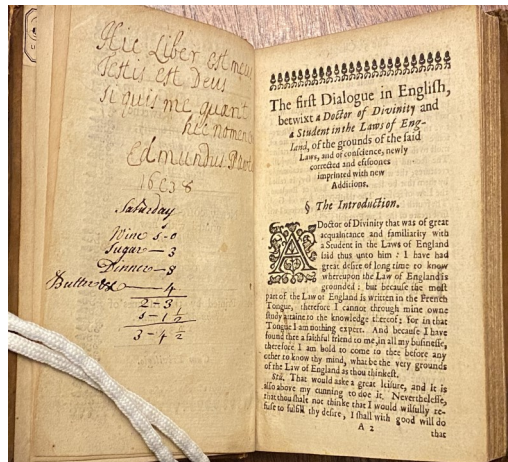 Hic Liber est meus
Testis est Deus
Si quis me quærit
hic nomen
Edmundus
Saturday
Wine 5-0
Sugar - 3
Dinner - 8
Butter &c - 4
2 - 3
5 - 1 1/2
3 - 4 1/2
The first Dialogue in Engliſh,
betwixt a Doctor of Divinity and
a Student in the Laws of Eng-
land, of the grounds of the ſaid
Laws, and of conſcience, newly
corrected and eftſoones
imprinted with new
Additions.
§ The Introduction.
A Doctor of Divinity that was of great
acquaintance and familiarity with
a Student in the Laws of England
ſaid thus unto him : I have had
great deſire of long time to know
whereupon the Law of England is
grounded : but becauſe the moſt
part of the Law of England is written in the French
Tongue, therefore I cannot through mine owne
ſtudy attaine to the knowledge thereof; for in that
Tongue I am nothing expert. And becauſe I have
found thee a faithful friend to me, in all my buſineſſe,
therefore I am bold to come to thee before any
other to know thy mind, what be the very grounds
of the Law of England as thou thinkeſt.
Stu. That would aske a great leiſure, and it is
alſo above my cunning to doe it. Nevertheleſſe,
that thou ſhalt not thinke that I would wilfully re-
fuſe to fulfill thy deſire, I ſhall with good will do
A 2
that